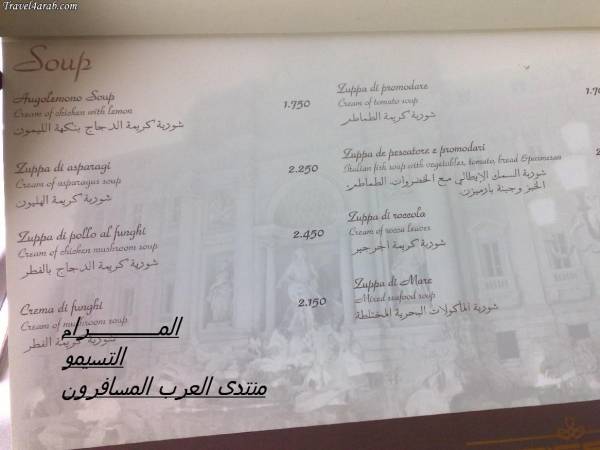 Travel4arab.com
Soup
Augolemono Soup 1.750
Cream of chicken with lemon
شوربة كريمة الدجاج بنكهة الليمون
Zuppa di asparagi 2.250
Cream of asparagus soup
شوربة كريمة الهليون
Zuppa di pollo al funghi 2.450
Cream of chicken mushroom soup
شوربة كريمة الدجاج بالفطر
Crema di funghi 2.150
Cream of mushroom soup
شوربة كريمة الفطر
Zuppa di promodare
Cream of tomato soup
شوربة كريمة الطماطر
Zuppa de pescatore e promodari
Italian fish soup with vegetables, tomato, bread & parmesan
شوربة السمك الإيطالي مع الخضروات الطماطر،
الخبز وجبنة بارميزن
Zuppa di roccola
Cream of rocca leaves
شوربة كريمة الجرجير
Zuppa di Mare
Mixed seafood soup
شوربة المأكولات البحرية المختلطة
المـــــــرام
التسيمو
منتدى العرب المسافرون